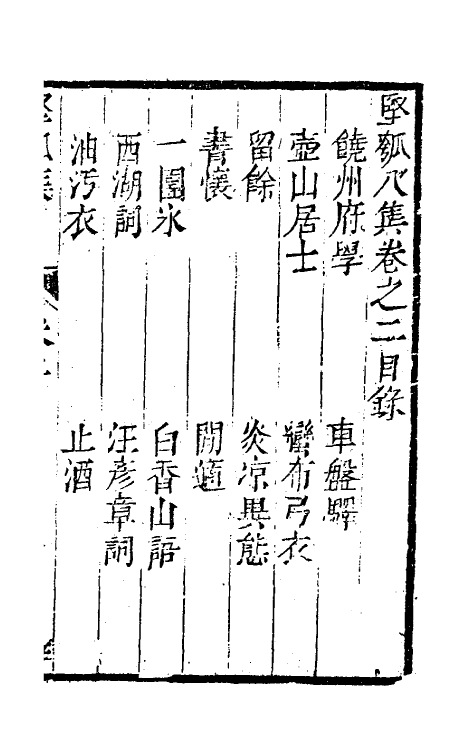 堅瓠八集卷之二目錄
饒州府學　車盤驛
壺山居士　蠻布弓衣
留餘　炎凉異態
書懷　閒適
一團氷　白香山語
西湖詞　汪彥章詞
油汚衣　止酒